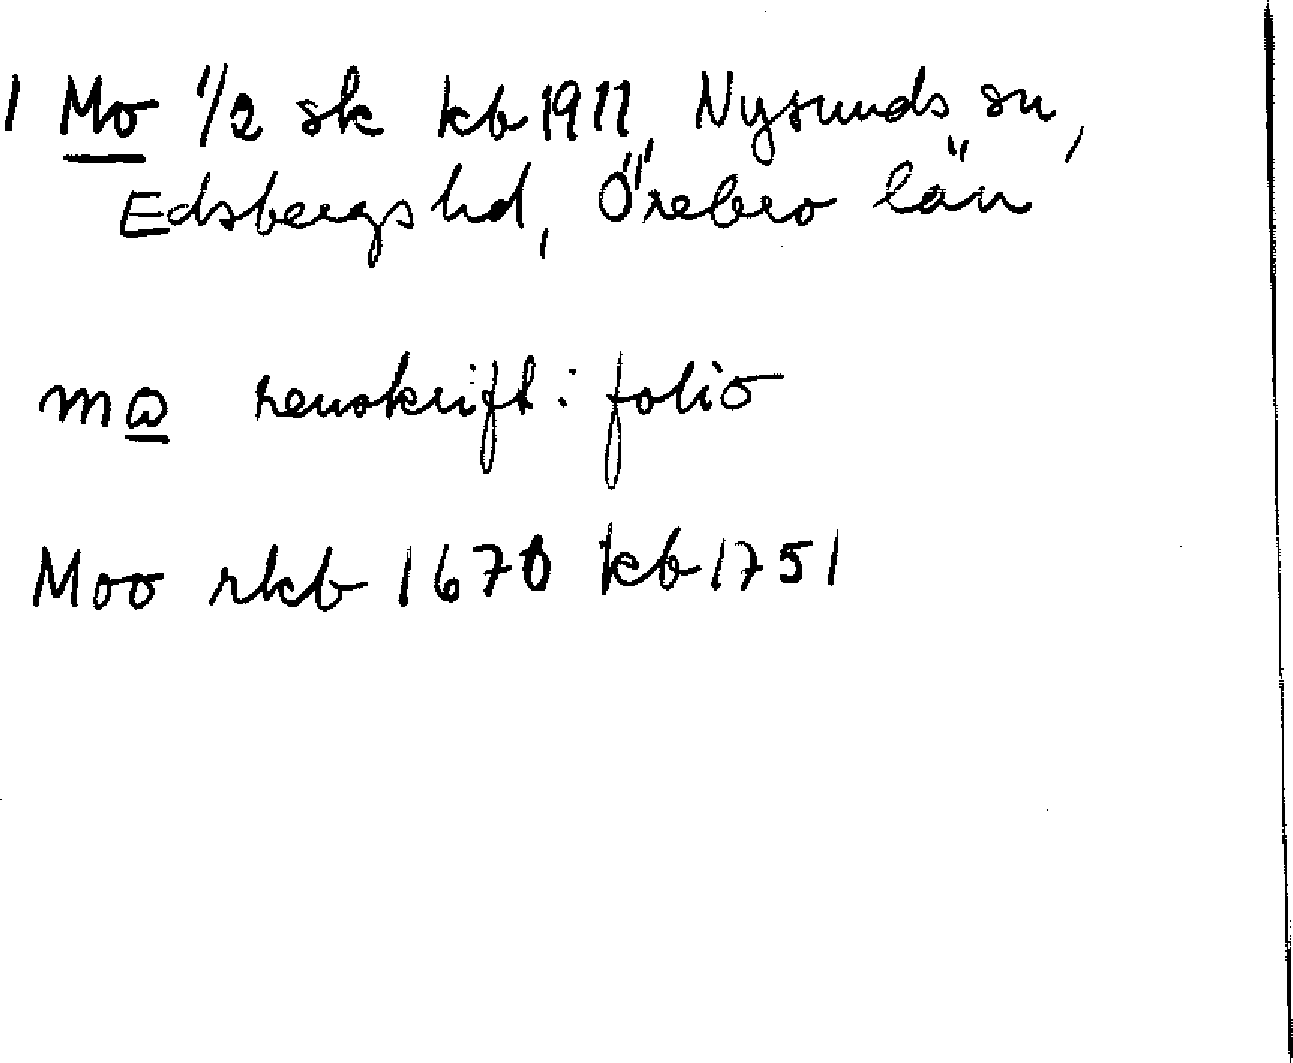 1 Mo 1/2 sk kb 1911, Nysunds sn,
Edsbergs hd, Örebro län
mω renskrift: folio
Moo rkb 1670 kb 1751